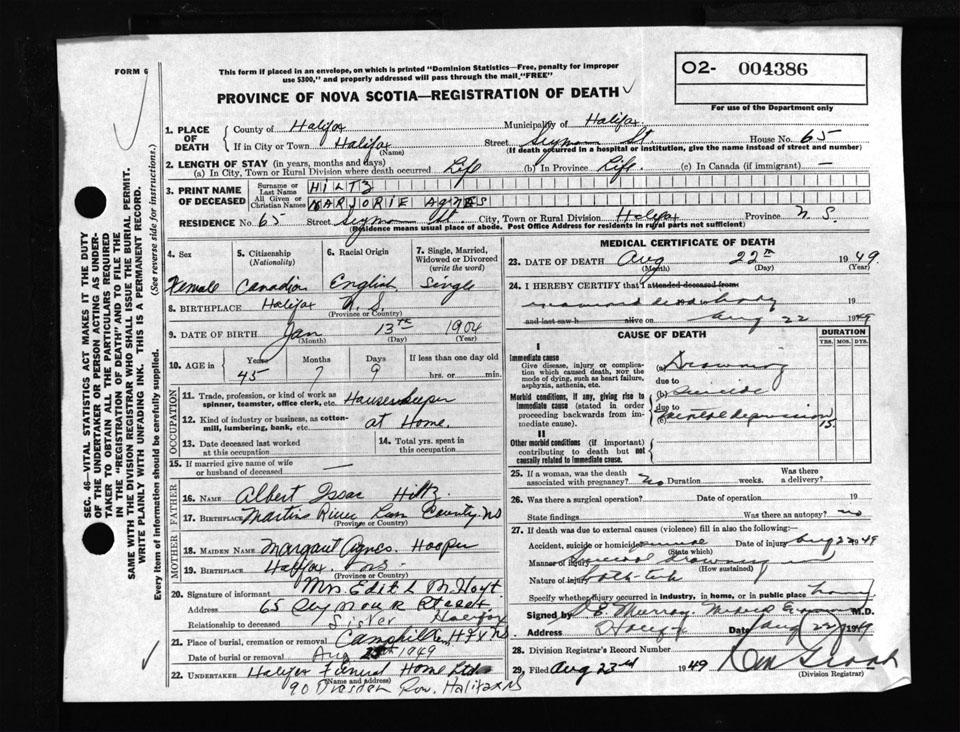 FORM 6
This form if placed in an envelope, on which is printed "Dominion Statistics—Free, penalty for improper
use $300," and properly addressed will pass through the mail "FREE"
PROVINCE OF NOVA SCOTIA—REGISTRATION OF DEATH
O2- 004386
For use of the Department only
SEC. 46—VITAL STATISTICS ACT MAKES IT THE DUTY
OF THE UNDERTAKER OR PERSON ACTING AS UNDER-
TAKER TO OBTAIN ALL THE PARTICULARS REQUIRED
IN THE "REGISTRATION OF DEATH" AND TO FILE THE
SAME WITH THE DIVISION REGISTRAR WHO SHALL ISSUE THE BURIAL PERMIT.
WRITE PLAINLY WITH UNFADING INK. THIS IS A PERMANENT RECORD.
Every item of information should be carefully supplied. (See reverse side for instructions.)
1. PLACE OF DEATH
County of Halifax Municipality of Halifax
If in City or Town Halifax Street St. House No. 65
(Name) (If death occurred in a hospital or institution, give the name instead of street and number)
2. LENGTH OF STAY (in years, months and days)
(a) In City, Town or Rural Division where death occurred Life (b) In Province Life. (c) In Canada (if immigrant) —
3. PRINT NAME OF DECEASED
Surname or Last Name HILTZ
All Given or Christian Names MARJORIE AGNES
RESIDENCE No. 65 Street St. City, Town or Rural Division Halifax Province N.S.
(Residence means usual place of abode. Post Office Address for residents in rural parts not sufficient)
4. Sex 5. Citizenship (Nationality) 6. Racial Origin 7. Single, Married, Widowed or Divorced (write the word)
Female Canadian English Single
8. BIRTHPLACE Halifax N.S
(Province or Country)
9. DATE OF BIRTH Jan 13th 1904
(Month) (Day) (Year)
10. AGE in Years Months Days If less than one day old
45 7 9 hrs. or min.
OCCUPATION
11. Trade, profession, or kind of work as
spinner, teamster, office clerk, etc. Housekeeper
12. Kind of industry or business, as cotton-
mill, lumbering, bank, etc. at Home.
13. Date deceased last worked
at this occupation
14. Total yrs. spent in
this occupation
15. If married give name of wife
or husband of deceased —
FATHER
16. NAME Albert Isaac Hiltz
17. BIRTHPLACE Martins River Lun County. NS
(Province or Country)
MOTHER
18. MAIDEN NAME Margaret Agnes. Hooper
19. BIRTHPLACE Halifax NS
(Province or Country)
20. Signature of informant Mrs. Edith M. Hoyt
Address 65 Seymour Street. Halifax
Relationship to deceased Sister
21. Place of burial, cremation or removal Camphill
Date of burial or removal Aug 1949
22. UNDERTAKER Halifax Funeral Home Ltd
(Name and address)
90 Dresden Row. Halifax NS
MEDICAL CERTIFICATE OF DEATH
23. DATE OF DEATH Aug 22nd 1949
(Month) (Day) (Year)
24. I HEREBY CERTIFY that I attended deceased from
19
and last saw h alive on Aug 22 1949
CAUSE OF DEATH
DURATION
YRS. MOS. DYS.
I
Immediate cause
Give disease, injury or complica-
tion which caused death, not the
mode of dying, such as heart failure,
asphyxia, asthenia, etc.
(a) Drowning
due to
Morbid conditions, if any, giving rise to
immediate cause (stated in order
proceeding backwards from im-
mediate cause).
(b) Suicide
due to
(c) Mental depression
15.
II
Other morbid conditions (if important)
contributing to death but not
causally related to immediate cause.
25. If a woman, was the death
associated with pregnancy? no Duration weeks.
Was there
a delivery?
26. Was there a surgical operation? Date of operation 19
State findings Was there an autopsy? no
27. If death was due to external causes (violence) fill in also the following:—
Accident, suicide or homicide? Date of injury Aug 22 1949
(State which)
Manner of injury drowning
(How sustained)
Nature of injury
Specify whether injury occurred in industry, in home, or in public place home
Signed by Murray. M.D.
Address Halifax Date Aug 22 1949
28. Division Registrar's Record Number
29. Filed Aug 23rd 1949
(Division Registrar)